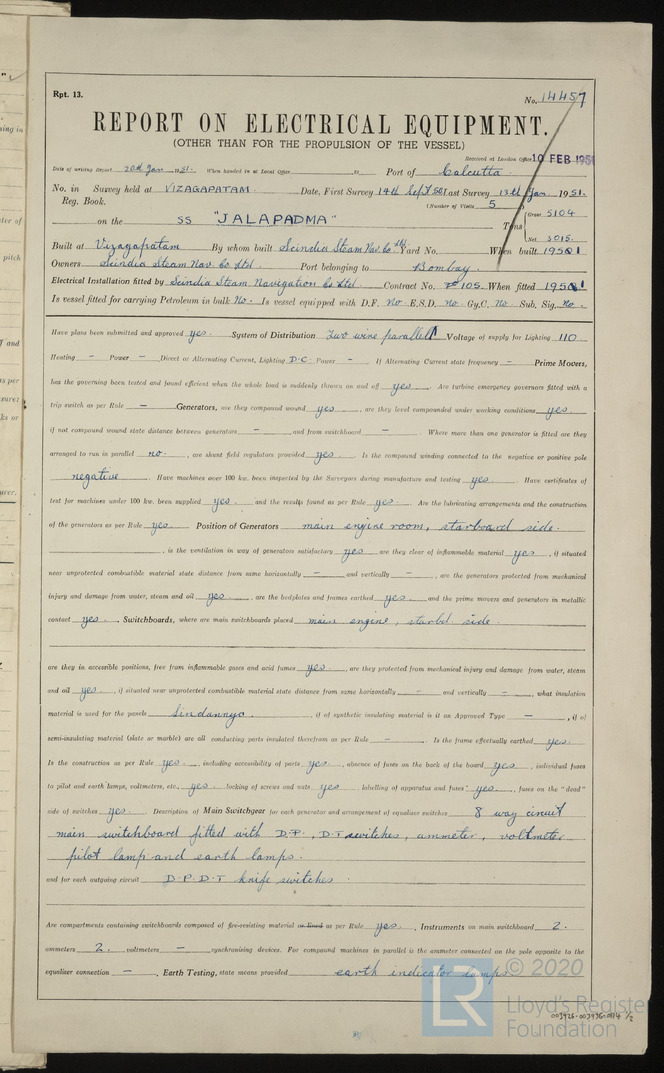 Rpt. 13.
No. 14457
REPORT ON ELECTRICAL EQUIPMENT.
(OTHER THAN FOR THE PROPULSION OF THE VESSEL)
Received at London Office 10 FEB 1951
Date of writing Report 20th Jan 1951. When handed in at Local Office 19 Port of Calcutta
No. in Survey held at VIZAGAPATAM Date, First Survey 14th Sept 50 Last Survey 13th Jan 1951.
Reg. Book. (Number of Visits 5
on the SS "JALAPADMA" Tons Gross 5104
Net 3015.
Built at Vizagapatam By whom built Scindia Steam Nav. Co Ltd. Yard No. When built 1951
Owners Scindia Steam Nav. Co Ltd. Port belonging to Bombay.
Electrical Installation fitted by Scindia Steam Navigation Co Ltd. Contract No. 105. When fitted 1951
Is vessel fitted for carrying Petroleum in bulk No. Is vessel equipped with D.F. No E.S.D. no Gy.C. No Sub. Sig. no.
Have plans been submitted and approved yes. System of Distribution Two wire parallel Voltage of supply for Lighting 110
Heating – Power – Direct or Alternating Current, Lighting D.C Power – If Alternating Current state frequency – Prime Movers,
has the governing been tested and found efficient when the whole load is suddenly thrown on and off yes. Are turbine emergency governors fitted with a
trip switch as per Rule – Generators, are they compound wound yes, are they level compounded under working conditions yes.
if not compound wound state distance between generators – and from switchboard –. Where more than one generator is fitted are they
arranged to run in parallel no, are shunt field regulators provided yes. Is the compound winding connected to the negative or positive pole
negative. Have machines over 100 kw. been inspected by the Surveyors during manufacture and testing yes. Have certificates of
test for machines under 100 kw. been supplied yes and the results found as per Rule yes. Are the lubricating arrangements and the construction
of the generators as per Rule yes. Position of Generators main engine room, starboard side.
, is the ventilation in way of generators satisfactory yes are they clear of inflammable material yes, if situated
near unprotected combustible material state distance from same horizontally – and vertically –, are the generators protected from mechanical
injury and damage from water, steam and oil yes, are the bedplates and frames earthed yes and the prime movers and generators in metallic
contact yes. Switchboards, where are main switchboards placed main engine, starbd side.
are they in accessible positions, free from inflammable gases and acid fumes yes, are they protected from mechanical injury and damage from water, steam
and oil yes, if situated near unprotected combustible material state distance from same horizontally – and vertically –, what insulation
material is used for the panels Sindannyo., if of synthetic insulating material is it an Approved Type –, if of
semi-insulating material (slate or marble) are all conducting parts insulated therefrom as per Rule –. Is the frame effectually earthed yes.
Is the construction as per Rule yes., including accessibility of parts yes, absence of fuses on the back of the board yes, individual fuses
to pilot and earth lamps, voltmeters, etc., yes. locking of screws and nuts yes labelling of apparatus and fuses yes, fuses on the "dead"
side of switches yes. Description of Main Switchgear for each generator and arrangement of equaliser switches 8 way circuit
main switchboard fitted with D.P., D.T switches, ammeter, voltmeter
pilot lamp and earth lamps.
and for each outgoing circuit D.P.D.T knife switches.
Are compartments containing switchboards composed of fire-resisting material or lined as per Rule yes. Instruments on main switchboard 2.
ammeters 2. voltmeters – synchronising devices. For compound machines in parallel is the ammeter connected on the pole opposite to the
equaliser connection –. Earth Testing, state means provided earth indicator lamps.
© 2020
Lloyd's Register
Foundation
003926-003936-0114 1/2